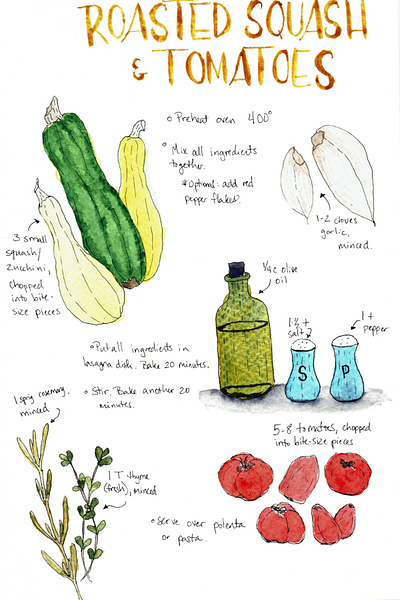 ROASTED SQUASH
& TOMATOES
Preheat oven 400°
Mix all ingredients
together.
*Optional: add red
pepper flakes.
1-2 cloves
garlic,
minced.
3 small
squash/
zucchini,
chopped
into bite-
size pieces
1/4 c. olive
oil
1-1/2 t
salt
1 t
pepper
S
P
Put all ingredients in
lasagna dish. Bake 20 minutes.
Stir. Bake another 20
minutes.
1 sprig rosemary,
minced
1 T thyme
(fresh), minced
5-8 tomatoes, chopped
into bite-size pieces
Serve over polenta
or pasta.